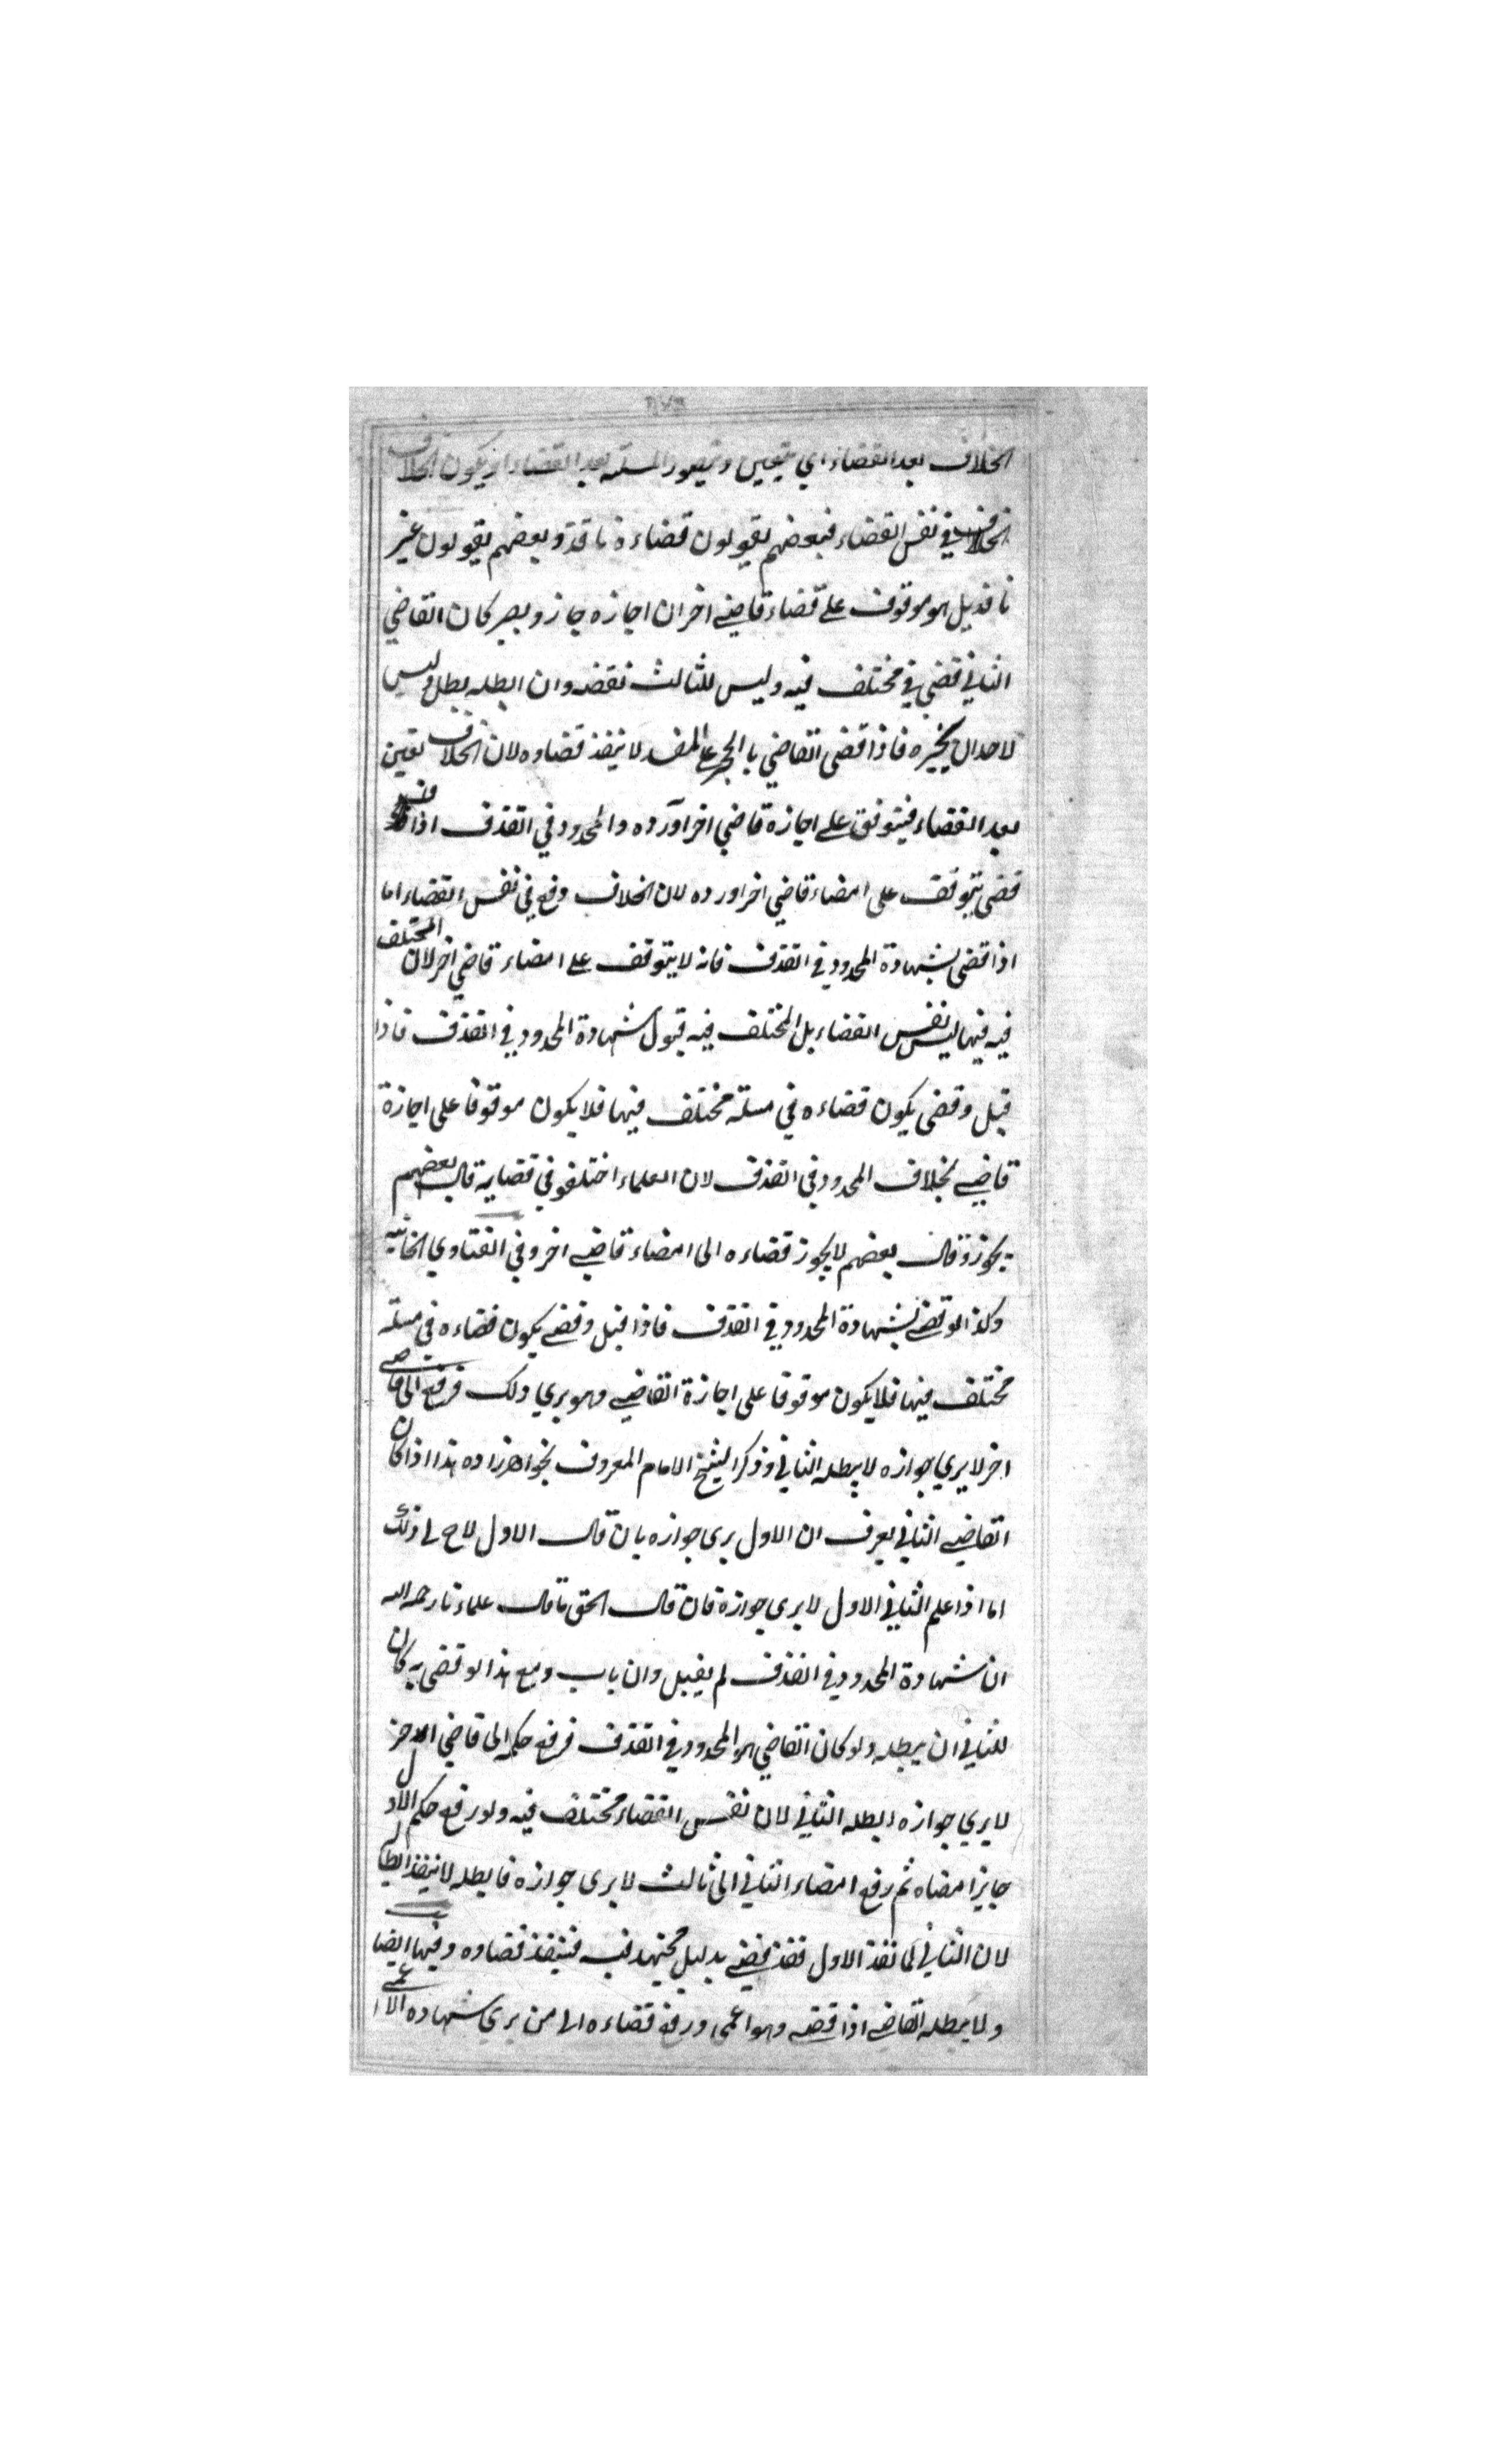 الخلاف بعد القضاء اي يتعين وتيصور المسئلة بعد القضاء او يكون الخلاف
الخلاف في نفس القضاء فبعضهم يقولون قضاءه نافذ وبعضهم يقولون غير
نافذ بل هو موقوف على قضاء قاضي اخر ان اجازه جاز ويصير كان القاضي
الثاني قضى في مختلف فيه وليس للثالث نقضه وان ابطله بطل وليس
لاحد ان يجيزه فاذا قضى القاضي بالحجر على المفسد لا ينفذ قضاوه لان الخلاف يتعين
بعد القضاء فيتوقف على اجازة قاضي اخر او رده والمحدود في القذف اذا
قضى يتوقف على امضاء قاضي اخر اورده لان الخلاف وقع في نفس القضاء اما
اذا قضى بشهادة المحدود في القذف فانه لا يتوقف على امضاء قاضي اخر لان المختلف
فيه فيها ليس نفس القضاء بل المختلف فيه قبول شهادة المحدود في القذف فاذا
قبل وقضى يكون قضاءه في مسئلة مختلف فيها فلا يكون موقوفا على اجازة
قاضي بخلاف المحدود في القذف لان العلماء اختلفو في قضايه قال بعضهم
يجوز وقال بعضهم لا يجوز قضاءه الى امضاء قاضي اخر وفي الفتاوي الخانية
وكذا لو قضى بشهادة المحدود في القذف فاذا قبل وقضى يكون قضاءه في مسئلة
مختلف فيها فلا يكون موقوفا على اجازة القاضي وهو يري ذلك فرفع الى قاضي
اخر لا يري جوازه لا يبطله الثاني وذكر الشيخ الامام المعروف بخواهرزاده هذا اذا كان
القاضي الثاني يعرف ان الاول يرى جوازه بان قال الاول لاح لي ذلك
اما اذا علم الثاني الاول لا يرى جوازه فان قال الحق ما قال علماءنا رحمه الله
ان شهادة المحدود في القذف لم يقبل وان تاب ومع هذا لو قضى به كان
للثاني ان يبطله ولو كان القاضي هو المحدود في القذف فرفع حكمه الى قاضي اخر
لا يري جوازه ابطله الثاني لان نفس القضاء مختلف فيه ولو رفع حكم الاول
جايزا امضاه ثم رفع امضاء الثاني الى ثالث لا يرى جوازه فابطله لا ينفذ ابطاله
لان الثاني لما نفذ الاول فقد قضى بدليل مجتهد فيه فينفذ قضاوه وفيها ايضا
ولا يبطله القاضي اذا قضى وهو اعمى ورفع قضاءه الى من يري شهاده الاعمى